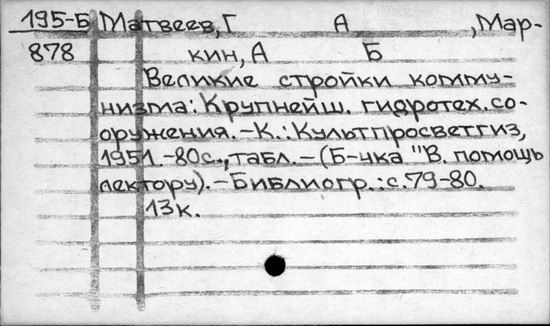 195-Б Матвеев, Г А , Мар-
878 кин, А Б
Великие стройки комму-
низма: Крупнейш. гидротех. со-
оружения. – К.: Культпросветгиз,
1951. – 80с., табл. – (Б-чка "В помощь
лектору). – Библиогр.: с. 79-80.
13к.